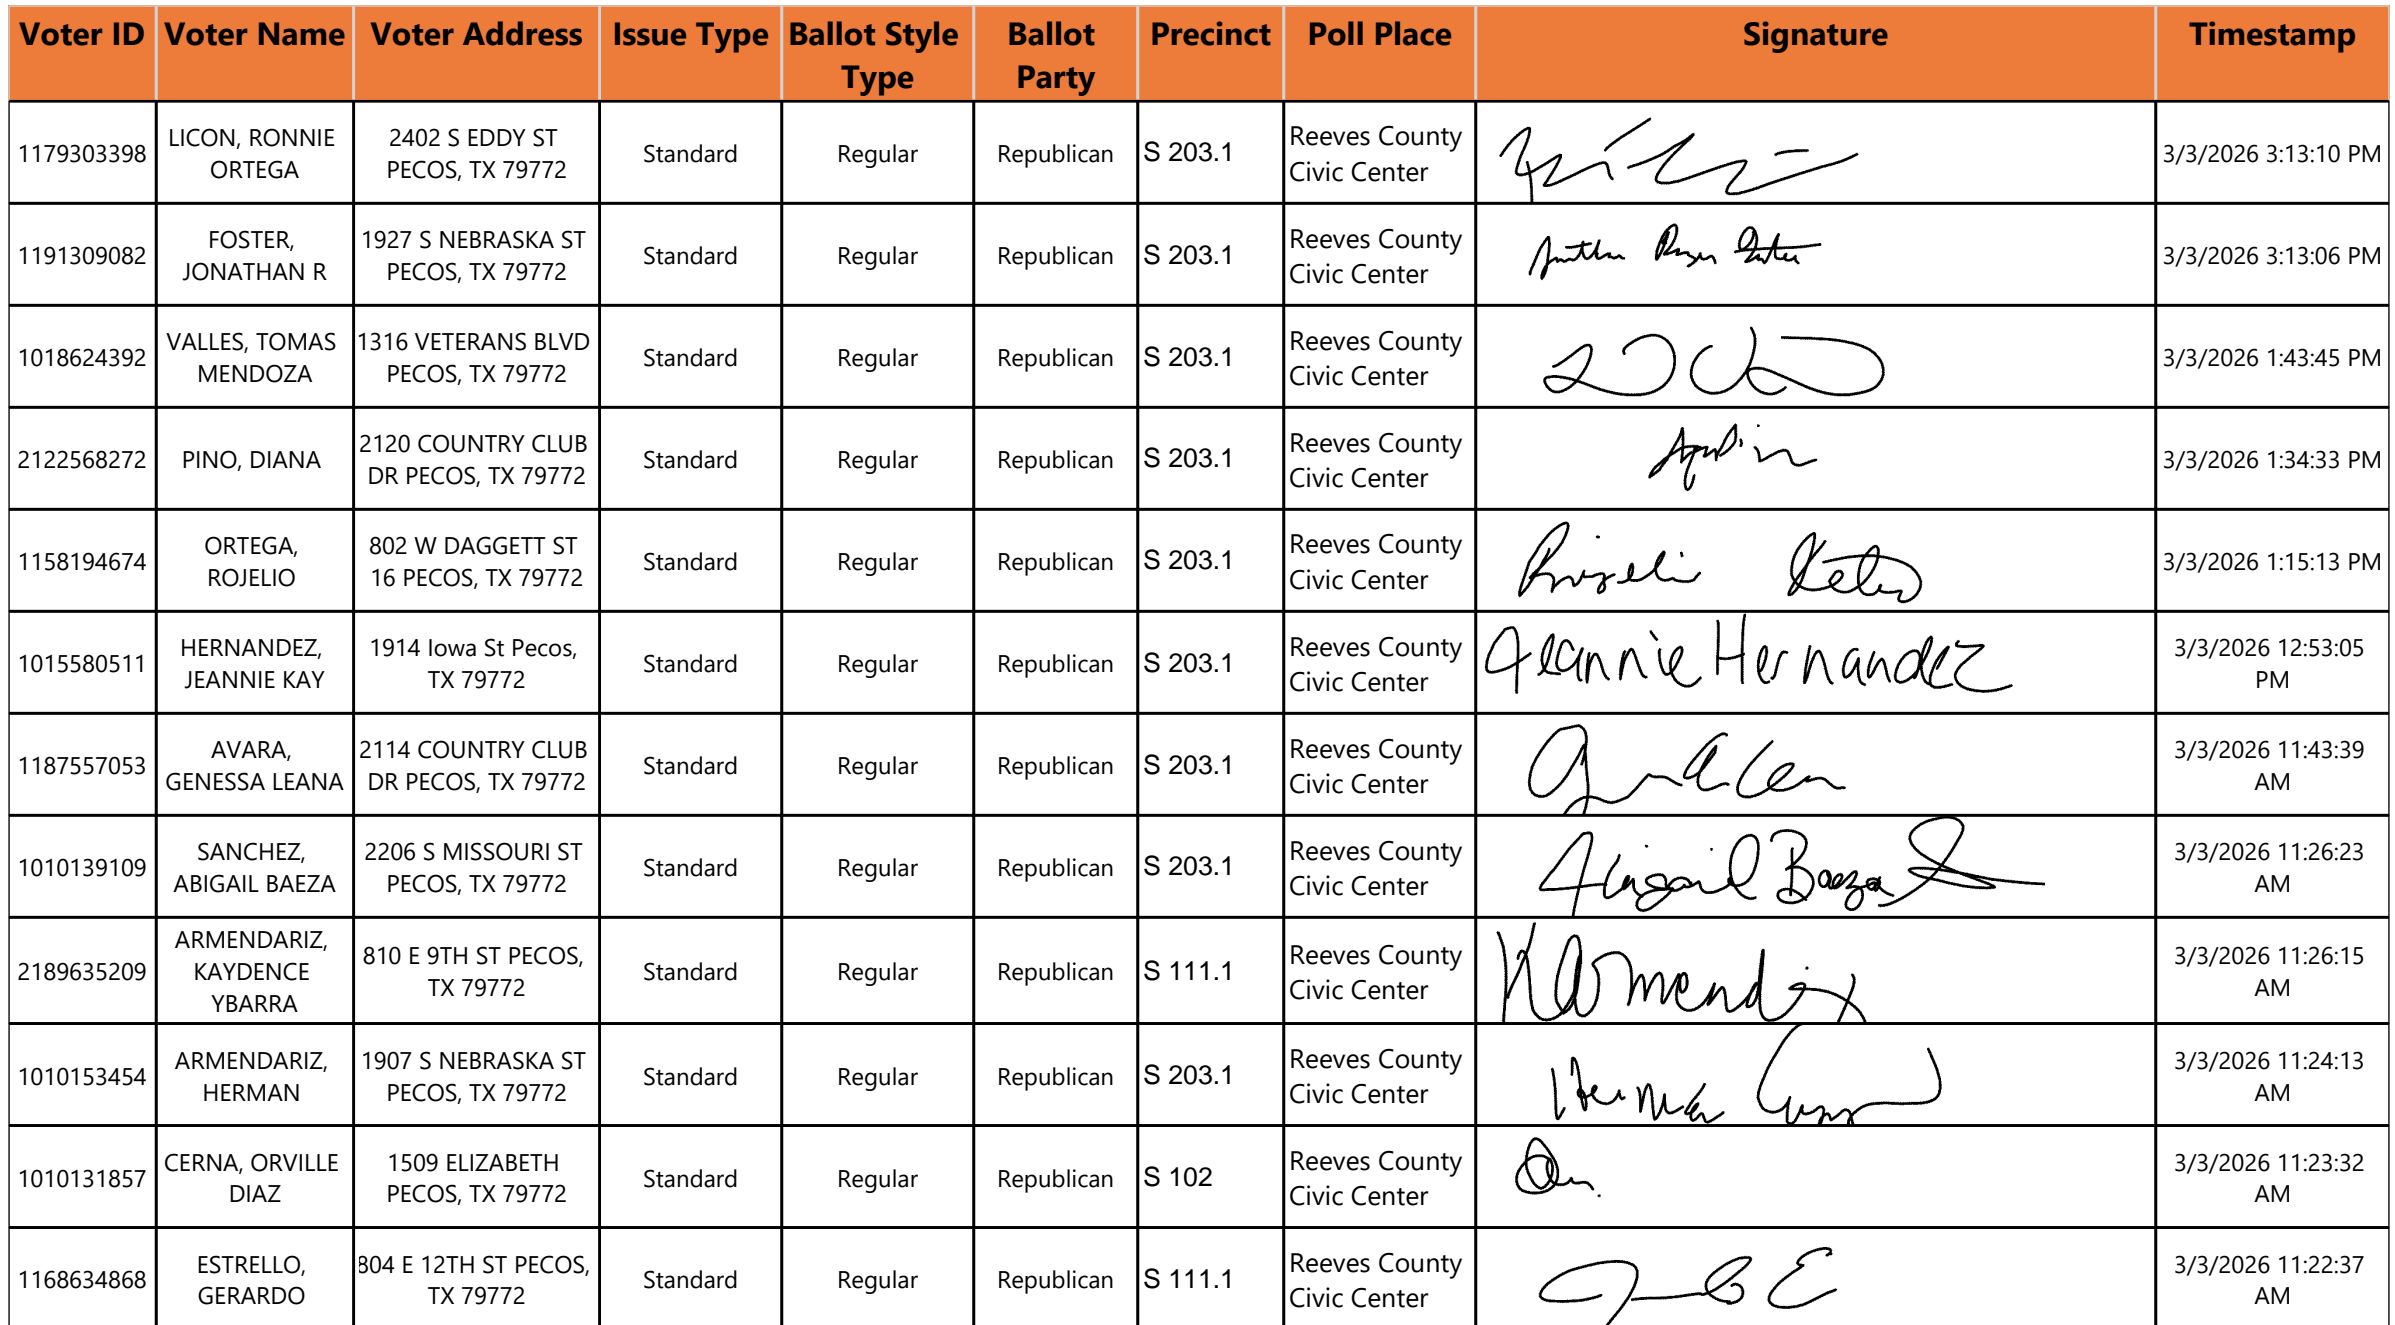 Voter ID Voter Name Voter Address Issue Type Ballot Style Type Ballot Party Precinct Poll Place Signature Timestamp
1179303398 LICON, RONNIE ORTEGA 2402 S EDDY ST PECOS, TX 79772 Standard Regular Republican S 203.1 Reeves County Civic Center 3/3/2026 3:13:10 PM
1191309082 FOSTER, JONATHAN R 1927 S NEBRASKA ST PECOS, TX 79772 Standard Regular Republican S 203.1 Reeves County Civic Center 3/3/2026 3:13:06 PM
1018624392 VALLES, TOMAS MENDOZA 1316 VETERANS BLVD PECOS, TX 79772 Standard Regular Republican S 203.1 Reeves County Civic Center 3/3/2026 1:43:45 PM
2122568272 PINO, DIANA 2120 COUNTRY CLUB DR PECOS, TX 79772 Standard Regular Republican S 203.1 Reeves County Civic Center 3/3/2026 1:34:33 PM
1158194674 ORTEGA, ROJELIO 802 W DAGGETT ST 16 PECOS, TX 79772 Standard Regular Republican S 203.1 Reeves County Civic Center 3/3/2026 1:15:13 PM
1015580511 HERNANDEZ, JEANNIE KAY 1914 Iowa St Pecos, TX 79772 Standard Regular Republican S 203.1 Reeves County Civic Center Jeannie Hernandez 3/3/2026 12:53:05 PM
1187557053 AVARA, GENESSA LEANA 2114 COUNTRY CLUB DR PECOS, TX 79772 Standard Regular Republican S 203.1 Reeves County Civic Center 3/3/2026 11:43:39 AM
1010139109 SANCHEZ, ABIGAIL BAEZA 2206 S MISSOURI ST PECOS, TX 79772 Standard Regular Republican S 203.1 Reeves County Civic Center Abigail Baeza 3/3/2026 11:26:23 AM
2189635209 ARMENDARIZ, KAYDENCE YBARRA 810 E 9TH ST PECOS, TX 79772 Standard Regular Republican S 111.1 Reeves County Civic Center 3/3/2026 11:26:15 AM
1010153454 ARMENDARIZ, HERMAN 1907 S NEBRASKA ST PECOS, TX 79772 Standard Regular Republican S 203.1 Reeves County Civic Center Herman 3/3/2026 11:24:13 AM
1010131857 CERNA, ORVILLE DIAZ 1509 ELIZABETH PECOS, TX 79772 Standard Regular Republican S 102 Reeves County Civic Center 3/3/2026 11:23:32 AM
1168634868 ESTRELLO, GERARDO 804 E 12TH ST PECOS, TX 79772 Standard Regular Republican S 111.1 Reeves County Civic Center 3/3/2026 11:22:37 AM